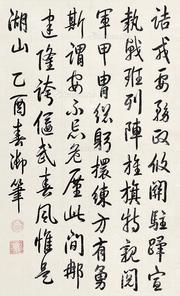 詰戎要務政攸關駐蹕宣
執戟班列陣旌旗特親閱
軍甲胄總躬擐練方有勇
斯謂安不忘危屢此間那
建隆誇偃武喜風惟是
湖山 乙酉春御筆